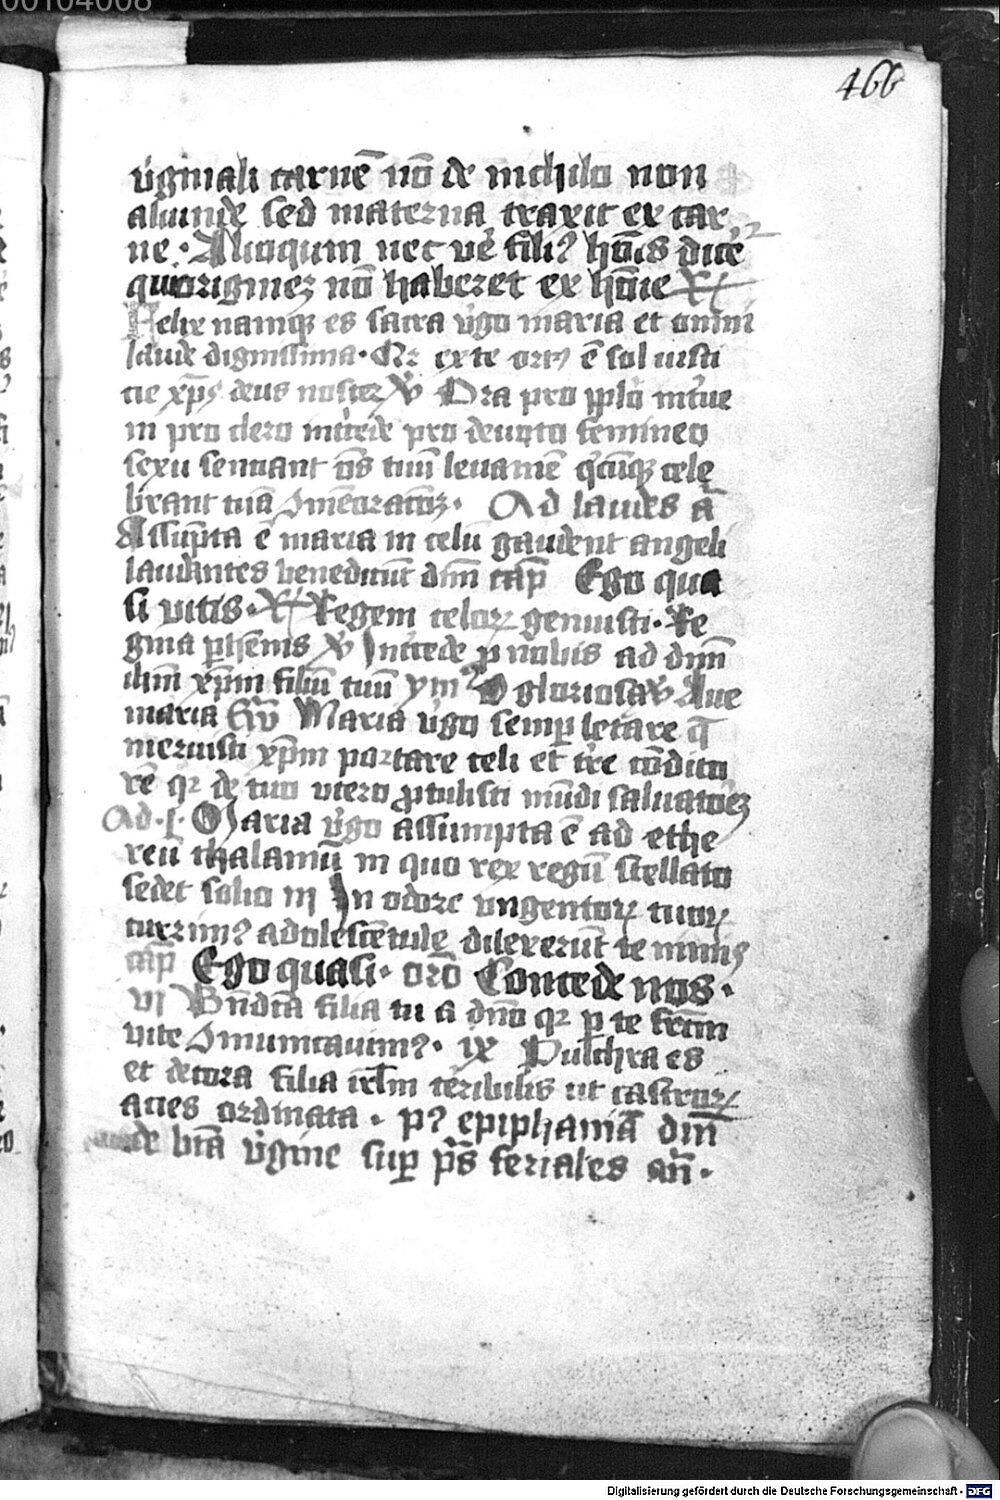 00104008
466
v'ginali carnē nō de nichilo non
aliunde sed materna traxit ex car
ne. Alioquin nec ve' fili9 hōis dice
qui originez nō haberet ex hōie R/
Felix namqz es sacra v'go maria et omni
laude dignissima. Qr ex te ort9 ē sol iusti
cie xp̄s deus noster V Ora pro pplō int'ue
ni pro clero int'cede pro deuoto femineo
sexu senciant oēs tuū leuamē q'cūqz cele
brant tuā 9mēoracōz. Ad laudes ā
Assūpta ē maria in celū gaudent angeli
laudantes benedicūt dn̄m cap̄ Ego qua
si vitis. R/ Regem celoꝝ genuisti. Re
gina p'hēnis V Int'cede p nobis ad dn̄m
ihm̄ xp̄m filiū tuū ym9 O gloriosa V Aue
maria Eu̅ Maria v'go semp̱ letare q̄
meruisti xp̄m portare celi et t're cōdito
rē qr de tuo utero ꝓtulisti mūdi saluatorez
Ad .i. Maria v'go assumpta ē ad ethe
reū thalamū in quo rex regū stellato
sedet solio iij In odore ungentoꝝ tuoꝝ
currim9 adolescētule dilexerūt te nimis
cap̄ Ego quasi. orō Concede nos.
vi Bn̄dcā filia tu a dn̄o qr p te fructm
vite 9municauim9. ix Pulchra es
et decora filia irl̄m terribilis ut castroꝝ
acies ordinata. p9 epiphaniā dn̄i
de btā v'gine sup̱ p̄s feriales an̄.
Digitalisierung gefördert durch die Deutsche Forschungsgemeinschaft - DFG